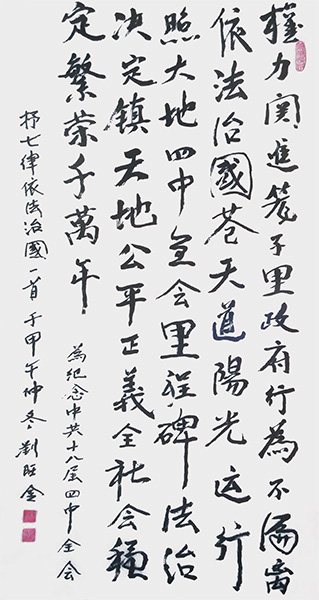 權力関進笼子里政府行為不偏离
依法治國苍天道陽光运行
照大地四中全会里程碑法治
决定镇天地公平正義全社会穏
定繁荣千萬年
為纪念中共十八届四中全会
抒七律依法治國一首于甲午仲冬劉旺金